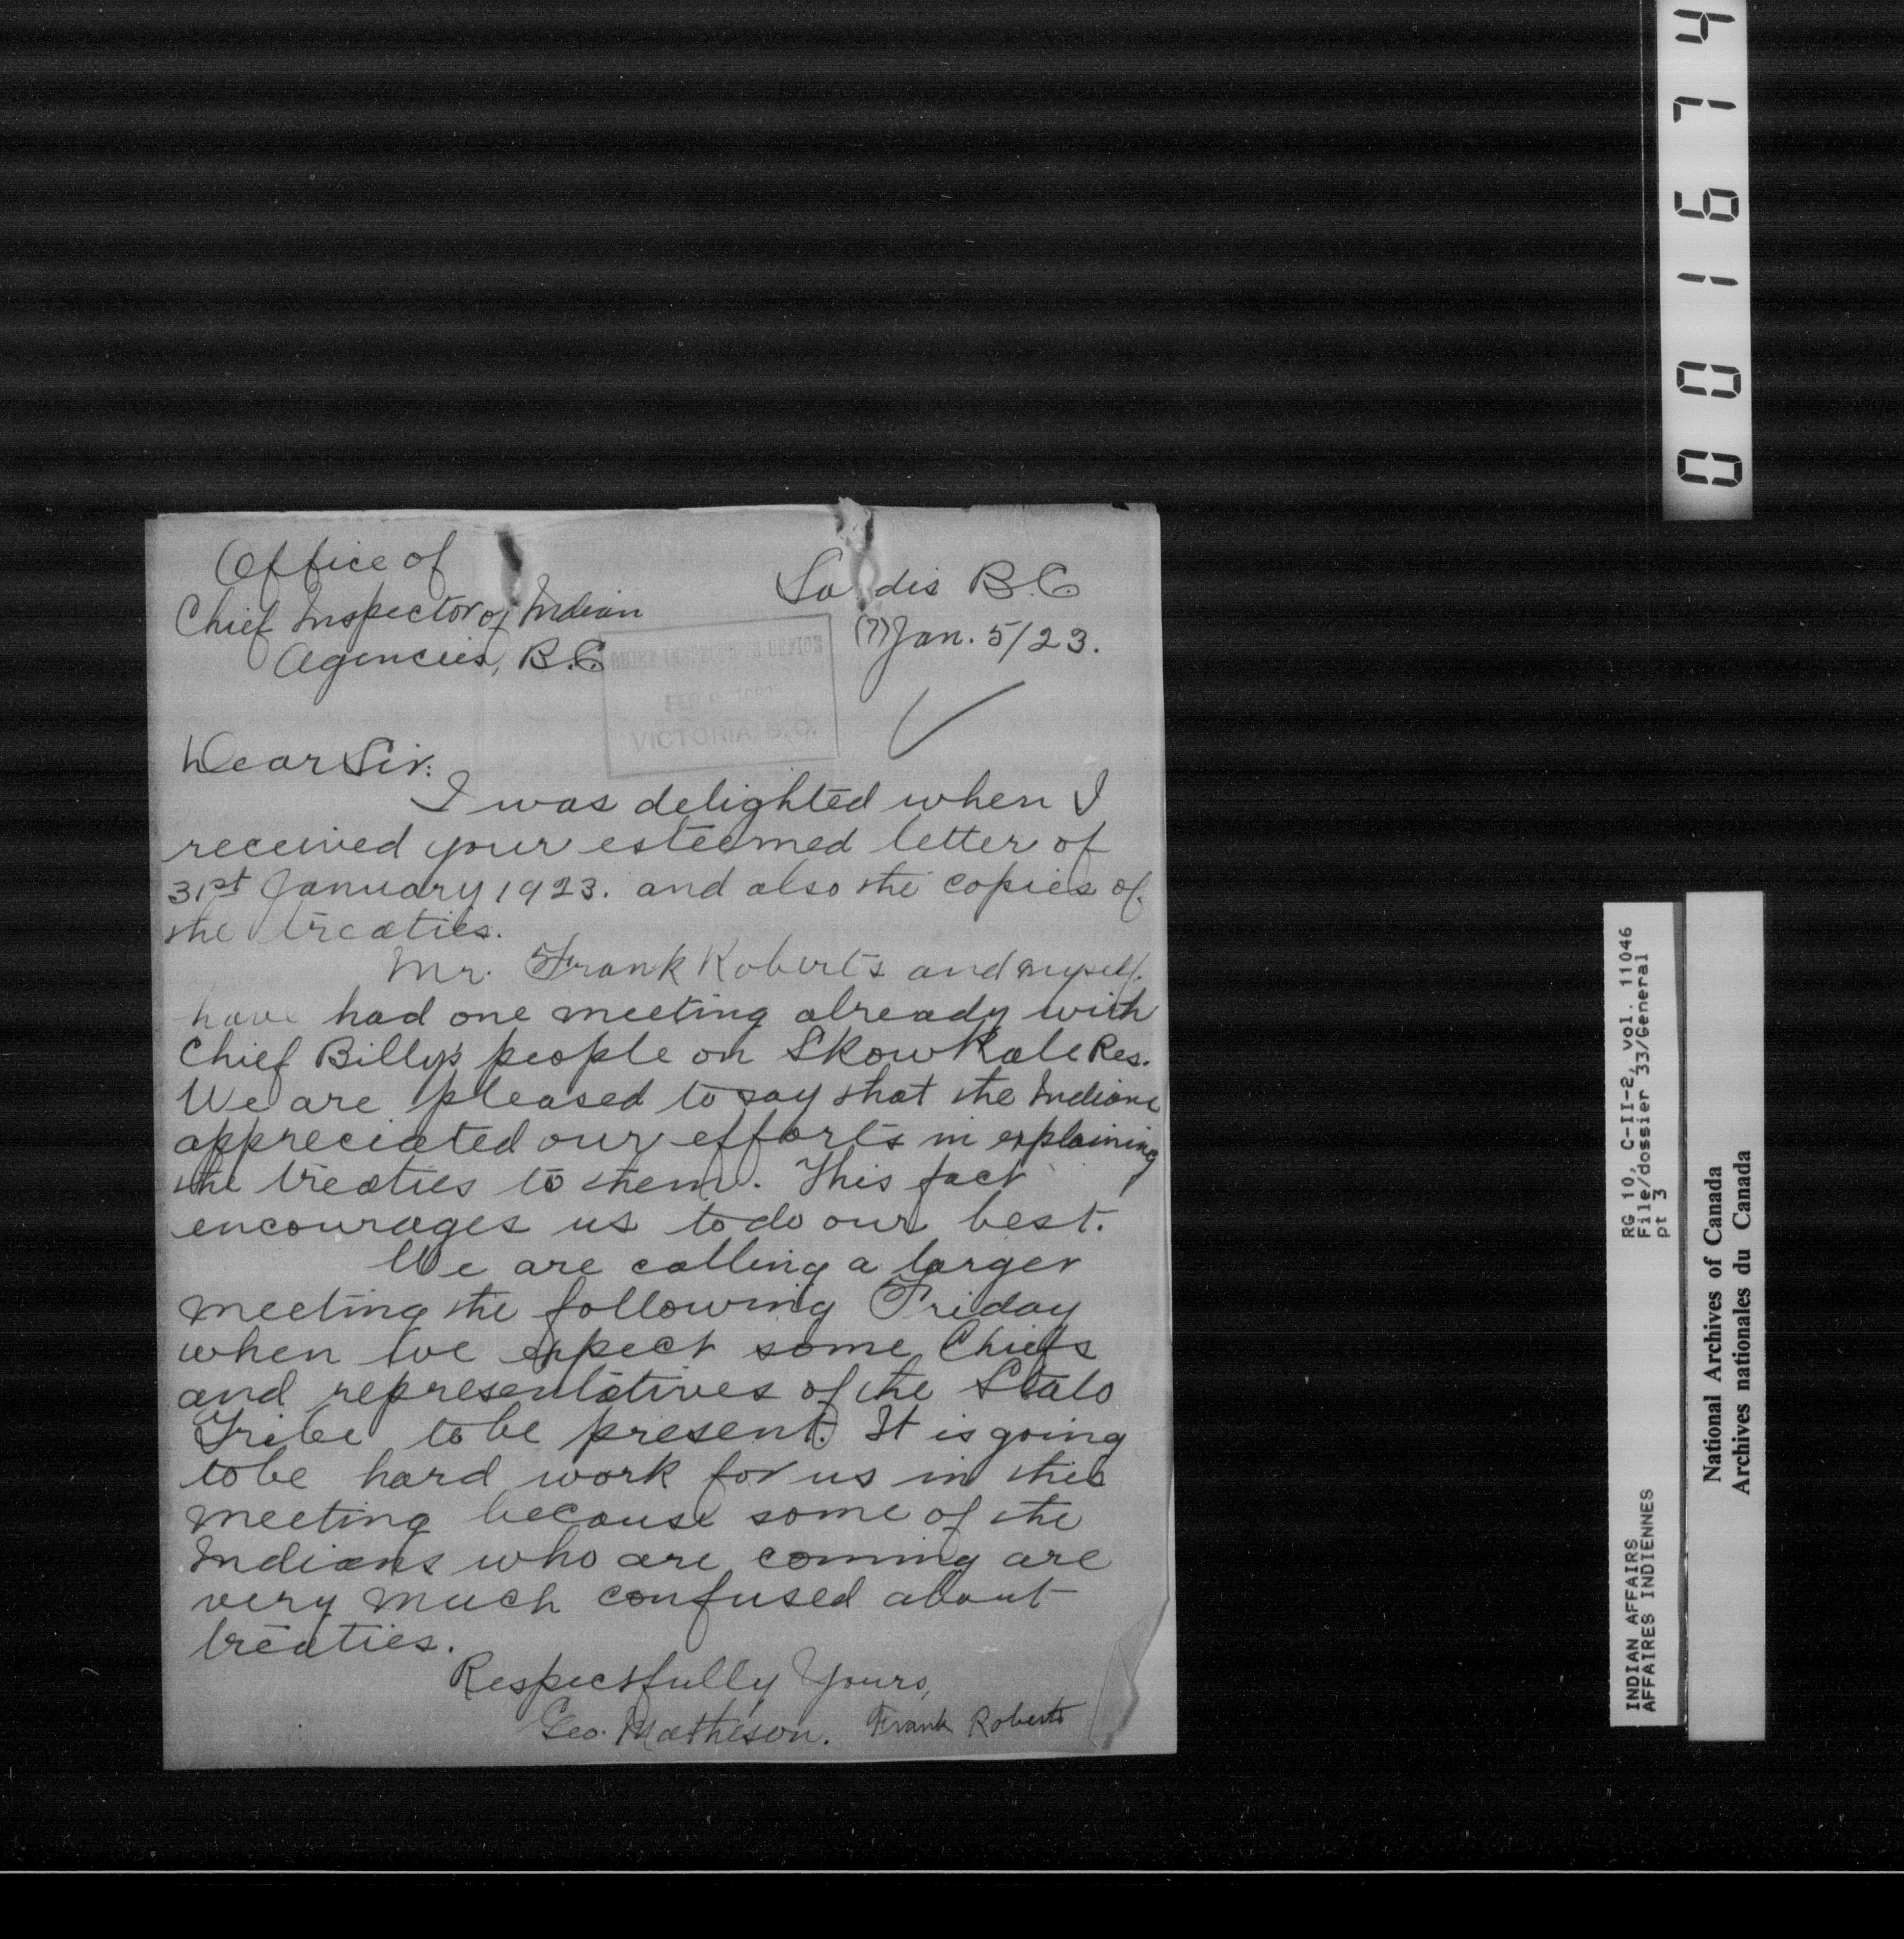 001674
Office of
Chief Inspector of Indian
Agencies, B.C
Sa dis B.C
(?) Jan. 5/23.
CHIEF INSPECTOR'S OFFICE
FEB
VICTORIA, B.C.
Dear Sir:
I was delighted when I
received your esteemed letter of
31st January 1923. and also the copies of
the treaties.
Mr. Frank Roberts and myself
have had one meeting already with
Chief Billy's people on Skowkale Res.
We are pleased to say that the Indians
appreciated our efforts in explaining
the treaties to them. This fact
encourages us to do our best.
We are calling a larger
meeting the following Friday
when we expect some Chiefs
and representatives of the Stalo
Tribe to be present. It is going
to be hard work for us in this
meeting because some of the
Indians who are coming are
very much confused about
treaties.
Respectfully Yours,
Geo. Matheson. Frank Roberts
INDIAN AFFAIRS RG 10, C-II-2, vol. 11046
AFFAIRES INDIENNES File/dossier 33/General
pt 3
National Archives of Canada
Archives nationales du Canada